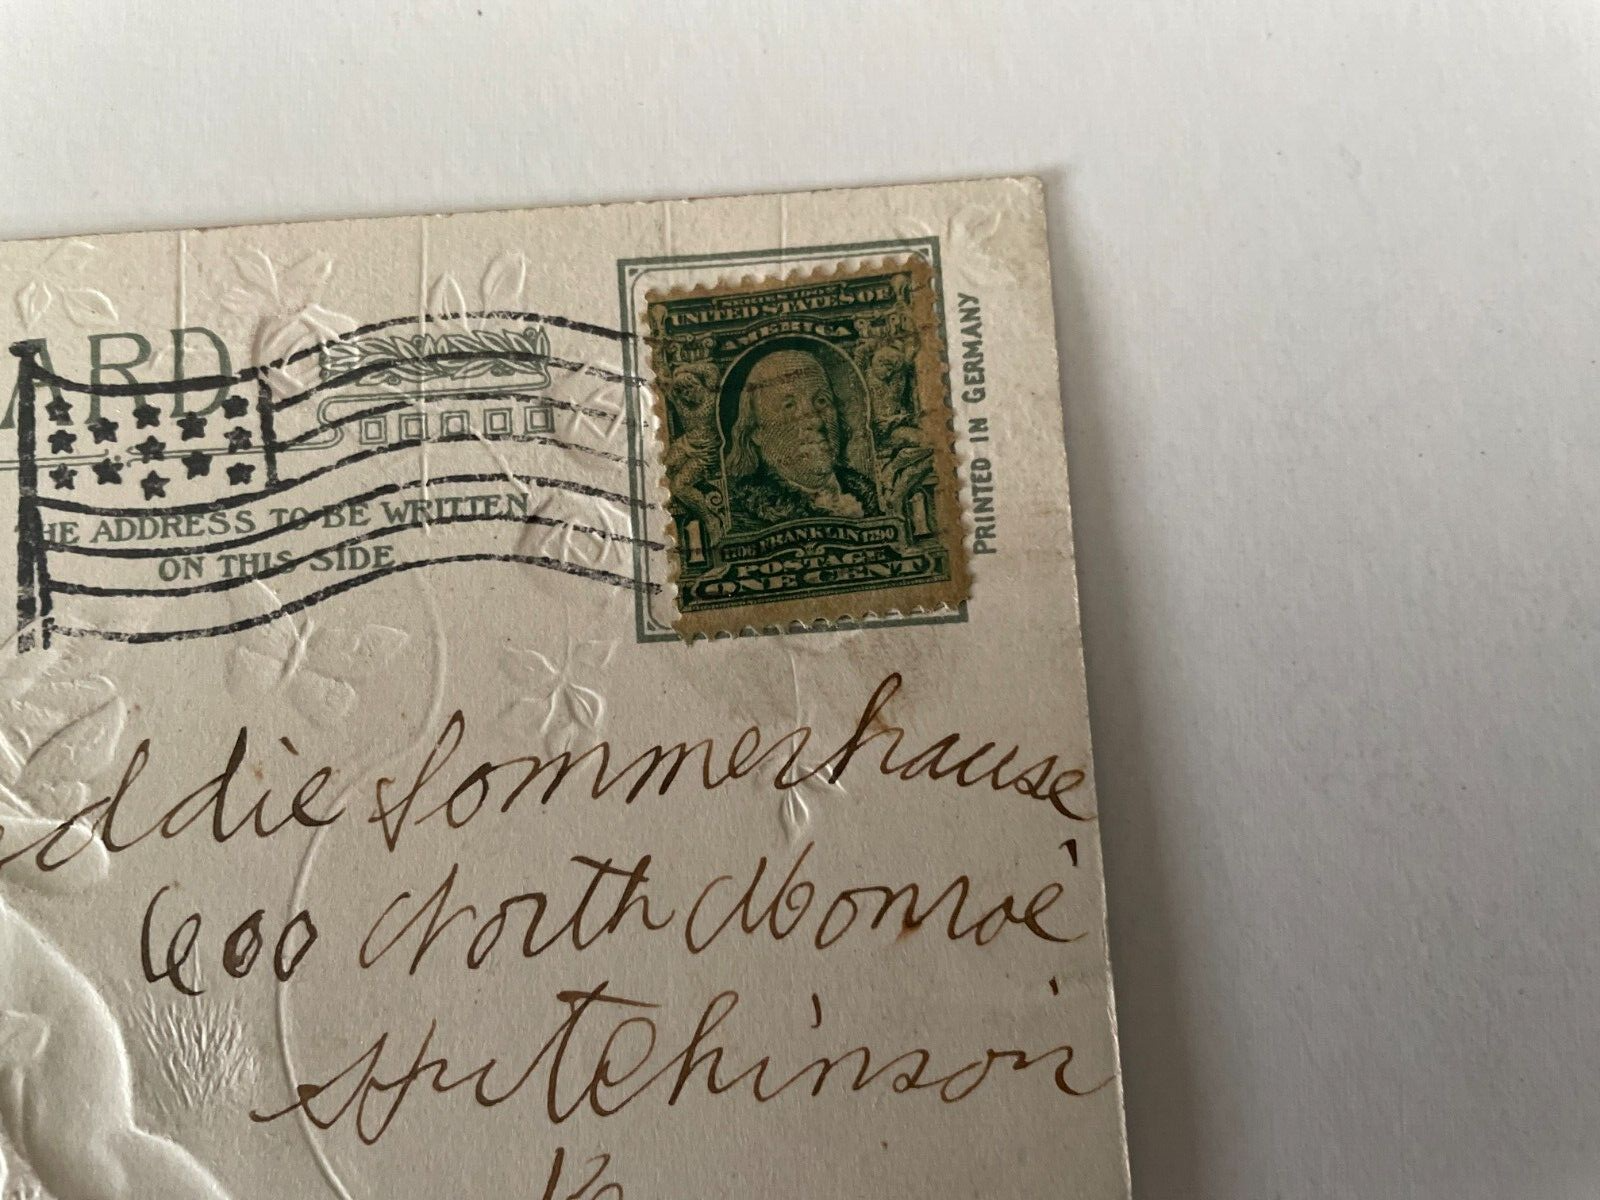 ARD
THE ADDRESS TO BE WRITTEN
ON THIS SIDE
SERIES 1902
UNITED STATES OF
AMERICA
1706 FRANKLIN 1790
1 1
POSTAGE
ONE CENT
PRINTED IN GERMANY
eddie Sommerhause
600 North Monroe
Hutchinson
K